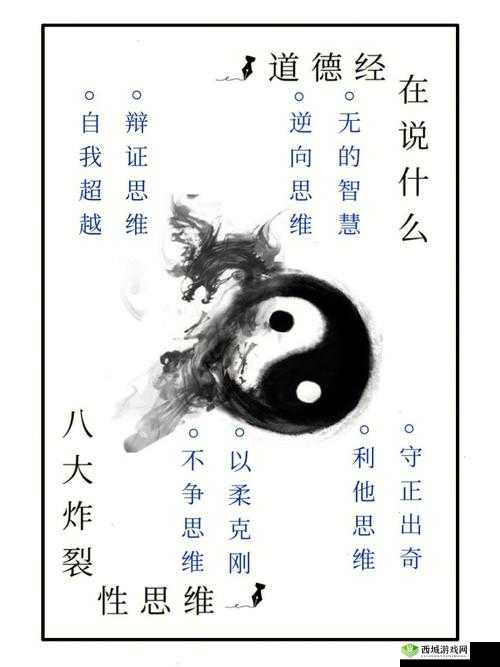 道德经
在说什么
无的智慧
逆向思维
辩证思维
自我超越
守正出奇
利他思维
以柔克刚
不争思维
八大炸裂
性思维
西城游戏网